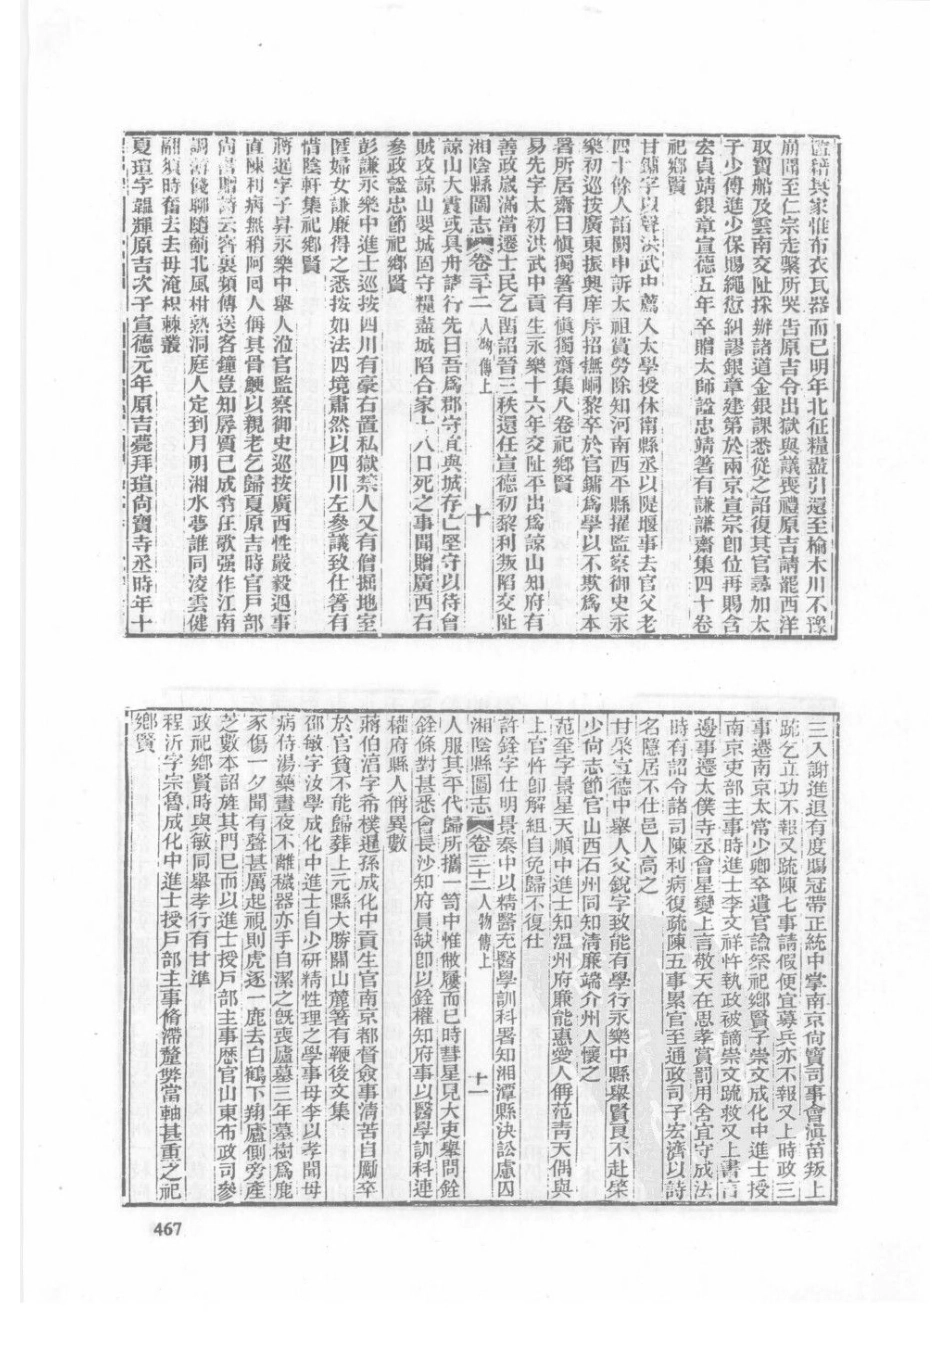 籍其家惟布衣瓦器而已明年北征糧盡引還至榆木川不豫
崩聞至仁宗走繫所哭告原吉令出獄與議喪禮原吉請罷西洋
取寶船及雲南交阯採辦諸道金銀課悉從之詔復其官尋加太
子少傅進少保賜繩愆糾謬銀章建第於兩京宣宗卽位再賜含
宏貞靖銀章宣德五年卒贈太師諡忠靖著有謙謙齋集四十卷
祀鄉賢
甘鏞字以聲洪武中薦入太學授休甯縣丞以隄堰事去官父老
四十餘人詣闕申訴太祖賞勞除知河南西平縣擢監察御史永
樂初巡按廣東振興庠序招撫峒黎卒於官鏞爲學以不欺爲本
署所居齋曰愼獨著有愼獨齋集八卷祀鄉賢
易先字太初洪武中貢生永樂十六年交阯平出爲諒山知府有
善政歲滿當遷士民乞留詔晉三秩還任宣德初黎利叛陷交阯
湘陰縣圖志 卷三十二 人物傳上 十
諒山大震或具舟請行先曰吾爲郡守宜與城存亡堅守以待會
賊攻諒山嬰城固守糧盡城陷合家十八口死之事聞贈廣西右
參政諡忠節祀鄉賢
彭謙永樂中進士巡按四川有豪右置私獄禁人又有僧掘地室
匿婦女謙廉得之悉按如法四境肅然以四川左參議致仕著有
惜陰軒集祀鄉賢
蔣暹字子昇永樂中舉人涖官監察御史巡按廣西性嚴毅遇事
直陳利病無稍阿同人偁其骨鯁以親老乞歸夏原吉時官戶部
尙書贈詩云客裏頻傳送客鐘豈知孱質已成翁狂歌强作江南
調淸餞聊隨薊北風柑熟洞庭人定到月明湘水夢誰同淩雲健
翮須時奮去去毋淹枳棘叢
夏瑄字韞輝原吉次子宣德元年原吉薨拜瑄尙寶寺丞時年十
三入謝進退有度賜冠帶正統中掌南京尙寶司事會滇苗叛上
疏乞立功不報又疏陳七事請假便宜募兵亦不報又上時政三
事遷南京太常少卿卒遣官諭祭祀鄉賢子崇文成化中進士授
南京吏部主事時進士李文祥忤執政被謫崇文疏救又上書言
邊事遷太僕寺丞會星變上言敬天在思孝賞罰用舍宜守成法
時有詔令諸司陳利病復疏陳五事累官至通政司子宏濟以詩
名隱居不仕邑人高之
甘棨宣德中舉人父銳字致能有學行永樂中縣舉賢良不赴棨
少尙志節官山西石州同知清廉端介州人懷之
范奎字景星天順中進士知温州府廉能惠愛人偁范青天偶與
上官忤卽解組自免歸不復仕
許銓字仕明景泰中以精醫充醫學訓科署知湘潭縣決訟慮囚
湘陰縣圖志 卷三十二 人物傳上 十一
人服其平代歸所攜一笥中惟敝屨而已時彗星見大吏舉問銓
銓條對甚悉會長沙知府員缺卽以銓權知府事以醫學訓科連
權府縣人偁異數
蔣伯滔字希樸暹孫成化中貢生官南京都督僉事清苦自勵卒
於官貧不能歸葬上元縣大勝關山麓著有鞭後文集
邵敏字汝學成化中進士自少硏精性理之學事母李以孝聞母
病侍湯藥晝夜不離穢器亦手自潔之旣喪廬墓三年墓樹爲鹿
豕傷一夕聞有聲甚厲起視則虎逐一鹿去白鶴下翔廬側旁產
芝數本詔旌其門已而以進士授戶部主事歷官山東布政司參
政祀鄉賢時與敏同舉孝行有甘準
程沂字宗魯成化中進士授戶部主事脩滯釐弊當軸甚重之祀
鄉賢
467